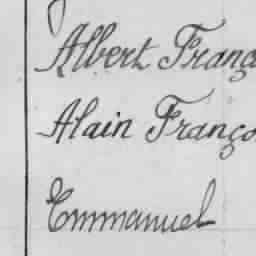 Albert Franç
Alain Franço
Emmanuel